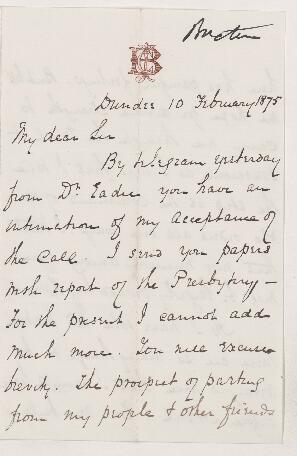 Dundee 10 February 1875
My dear Sir
By telegram yesterday
from Dr. Eadie you have an
intimation of my acceptance of
the Call. I send you papers
with report of the Presbytery –
For the present I cannot add
much more. You will excuse
brevity. The prospect of parting
from my people & other friends